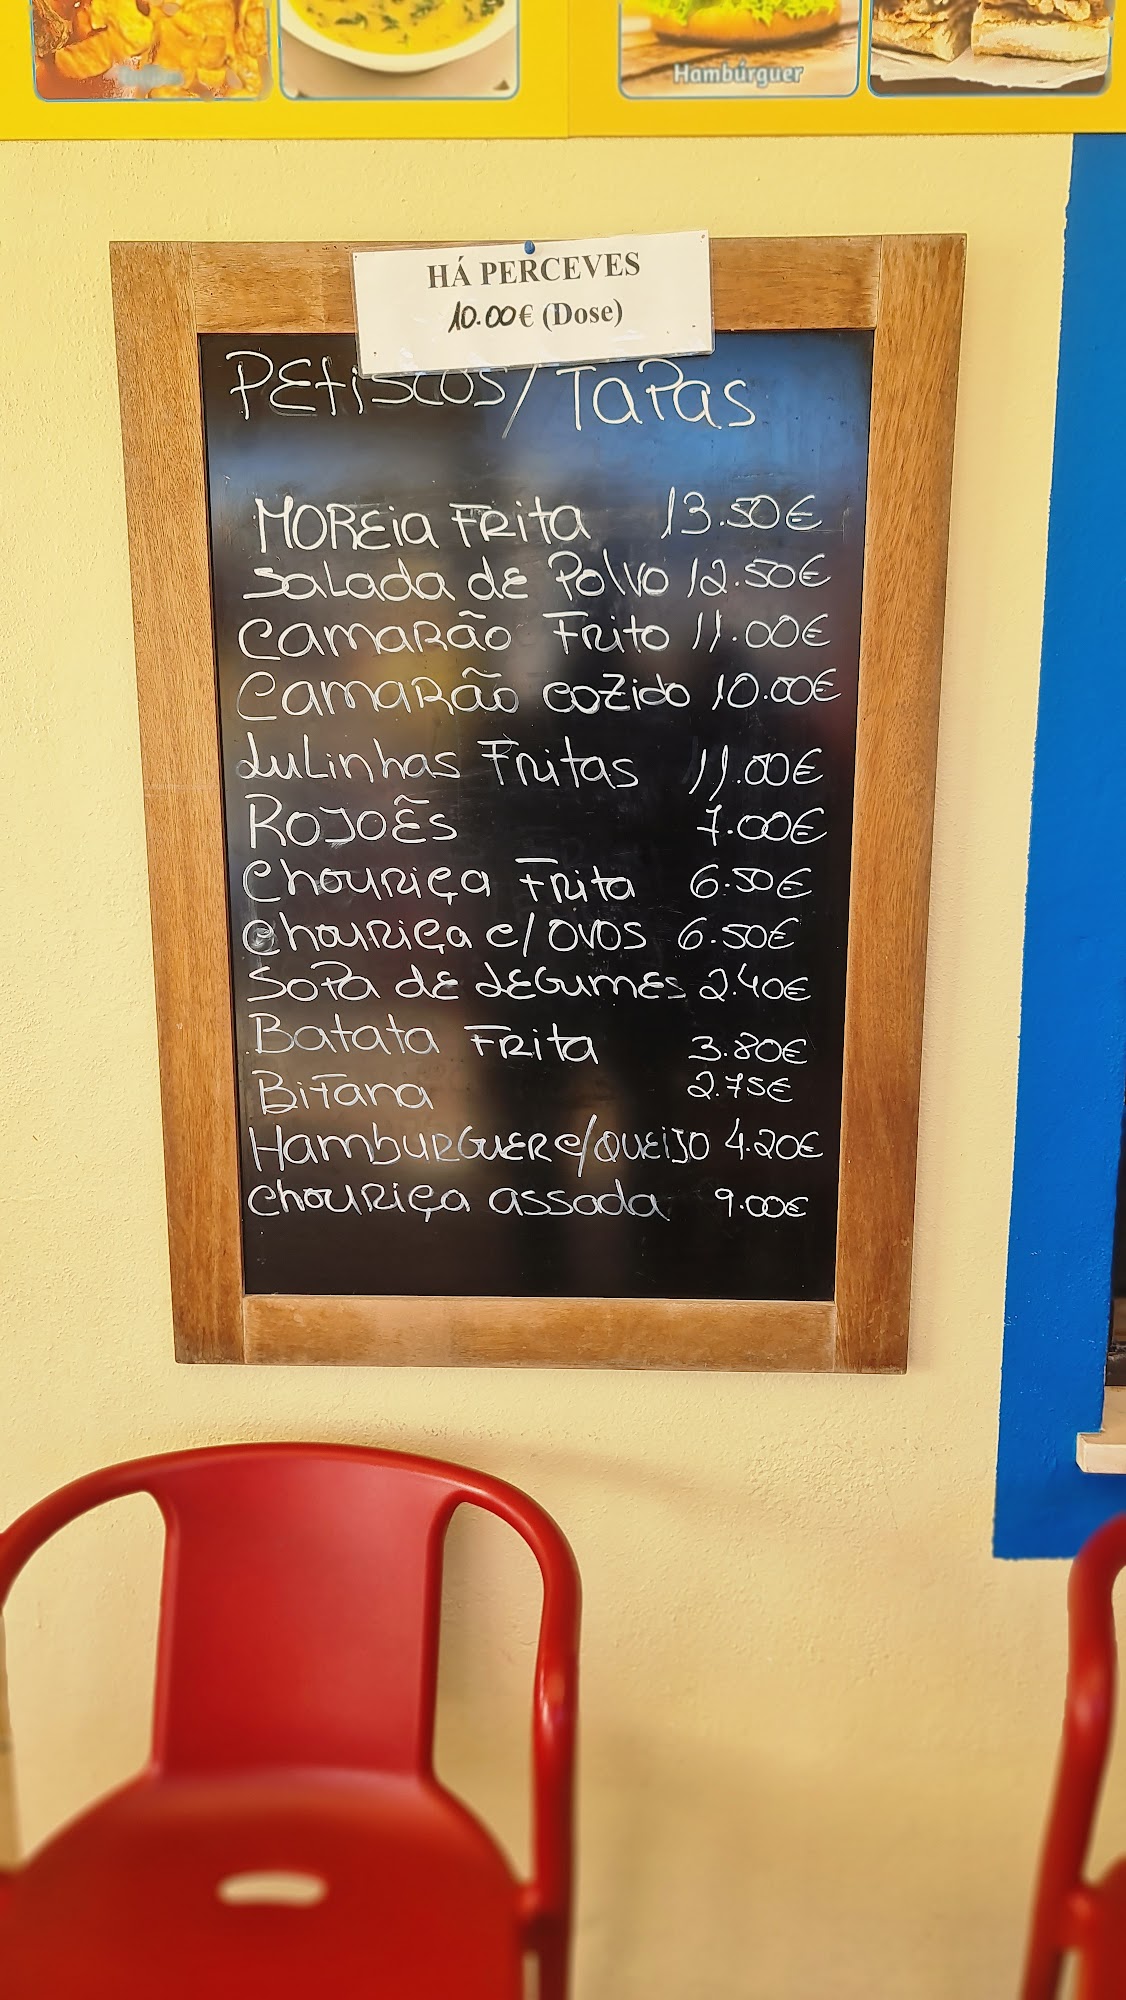 Hambúrguer
HÁ PERCEVES
10.00€ (Dose)
PEtiscos/Tapas
MOREia FRita 13.50€
Salada de Polvo 12.50€
Camarão Frito 11.00€
Camarão cozido 10.00€
Lulinhas Fritas 11.00€
ROJOÊS 7.00€
Chouriça Frita 6.50€
Chouriça c/ovos 6.50€
Sopa de LEGumes 2.40€
Batata Frita 3.80€
Bifana 2.75€
HambuRGuER c/QuEiJo 4.20€
Chouriça assada 9.00€